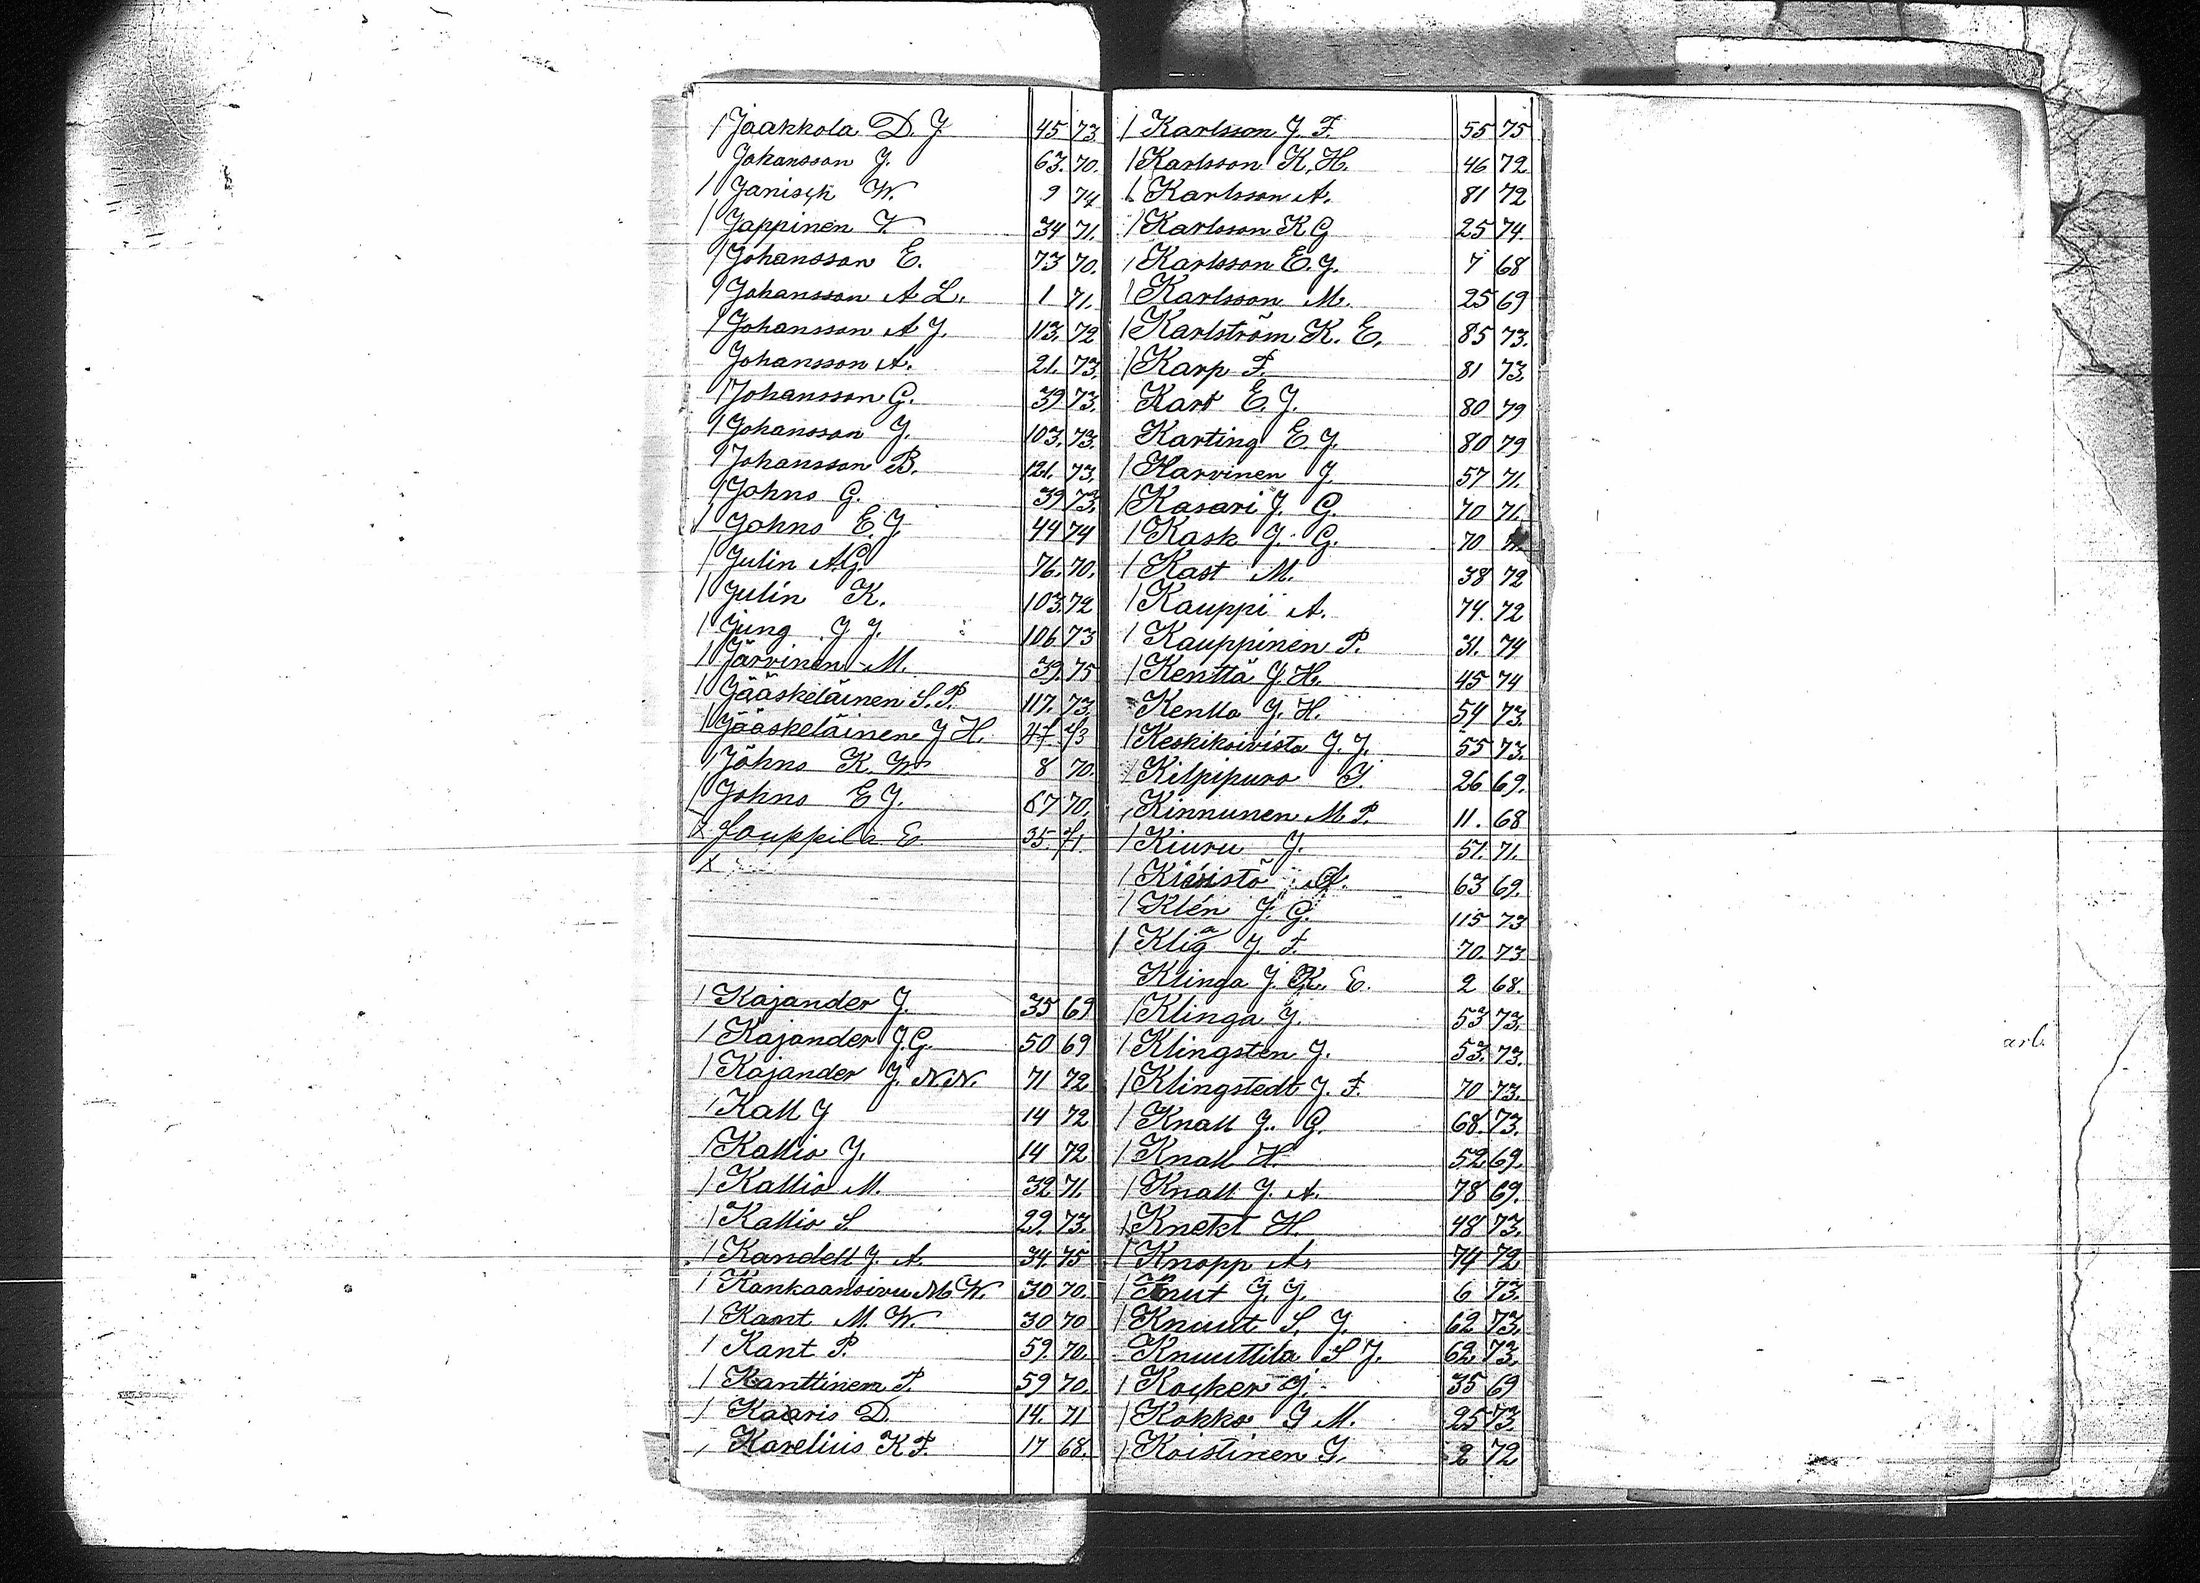 / Jaakkola D. J. 45 73.
Johansson J. 63. 70.
/ Janisch W. 9 74
/ Jappinen V. 34 71.
/ Johansson E. 73 70.
/ Johansson A L. 1 71.
/ Johansson A J. 113. 72
Johansson A. 21. 73.
/ Johansson G. 39 73.
/ Johansson J. 103. 73.
/ Johansson B. 121. 73.
/ Johns G. 39 73.
/ Johns E. J. 44 74
/ Julin A. G. 76. 70.
/ Julin K. 103. 72
/ Jung J J. 106 73
/ Järvinen M. 39. 75
/ Jääskeläinen S. P. 117. 73.
/ Jääskeläinen J H. 47. 73
/ Jöhns K. W. 8 70.
/ Johns E J. 67 70.
X Jauppila E. 35. 71.
X
/ Kajander J. 35 69
/ Kajander J. G. 50 69
/ Kajander J. N. N. 71 72
/ Kall J 14 72
/ Kallio J. 14 72
/ Kallio M. 32. 71.
/ Kallio S 29. 73.
/ Kandell J. A. 34. 75
/ Kankaansivu M W. 30 70.
/ Kant M. W. 30 70
/ Kant P. 59. 70.
/ Kanttinem P. 59 70.
/ Kaaris D. 14. 71
/ Karelius K F. 17 68.
/ Karlsson J. F. 55 75
/ Karlsson K. H. 46 72
/ Karlsson A. 81 72
/ Karlsson K G 25 74.
/ Karlsson E. J. 7 68
/ Karlsson M. 25 69
/ Karlström K. E. 85 73.
/ Karp F. 81 73.
Kart E. J. 80 79
Karting E J. 80 79
/ Karvinen J 57 71.
/ Kasari J. G. 70 71.
/ Kask J. G. 70
/ Kast M. 38 72
/ Kauppi A. 74. 72
/ Kauppinen P. 31. 74
/ Kenttä J. H. 45 74
Kentta J. H. 54 73.
/ Keskikoivisto J. J. 55 73.
/ Kilpipuro J. 26 69.
/ Kinnunen M P. 11. 68
/ Kiuru J. 51. 71.
/ Kivistö A. 63 69.
/ Klén J. G. 115 73
/ Klig J. F. 70. 73
Klinga J. K. E. 2 68.
/ Klinga J. 53 73.
/ Klingsten J. 53. 73.
/ Klingstedt J. F. 70 73.
/ Knall J. G. 68. 73.
/ Knall H. 52. 69.
/ Knall J. A. 78 69.
/ Knekt H. 48 73.
/ Knopp A. 74 72
/ Knut G. J. 6 73.
/ Knuut S. J. 62 73.
Knuuttila S J. 62. 73.
/ Kocker J. 35 69
/ Kokko J M. 25 73.
/ Koistinen J. 2 72